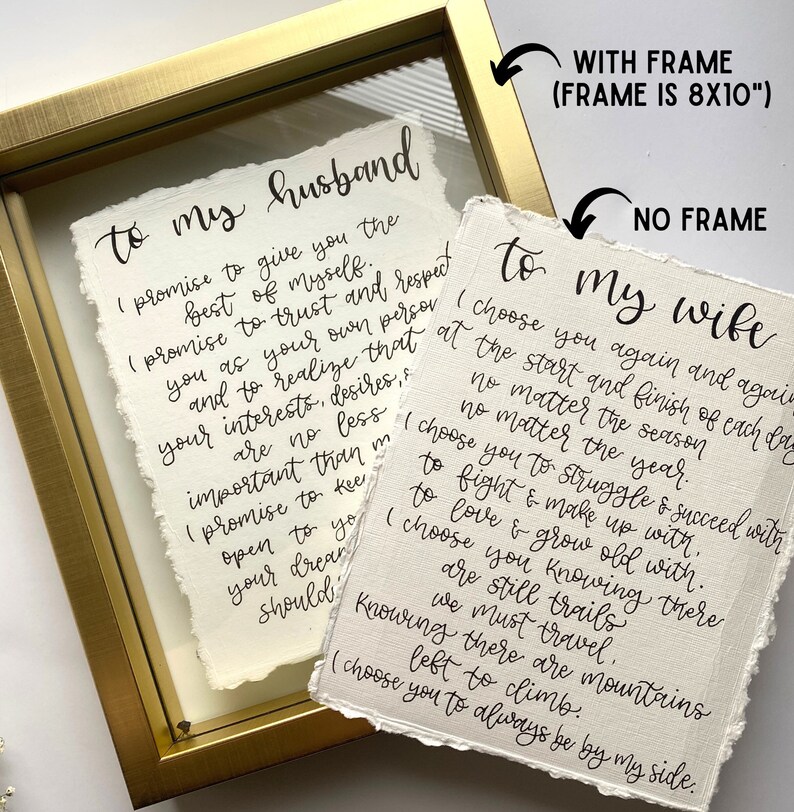 WITH FRAME
(FRAME IS 8X10")
NO FRAME
to my husband
I promise to give you the
best of myself.
I promise to trust and respect
you as your own person
and to realize that
your interests, desires,
are no less
important than
I promise to keep
open to
your dream
should
to my wife
I choose you again and again
at the start and finish of each day
no matter the season
no matter the year.
I choose you to struggle & succeed with
to fight & make up with,
to love & grow old with.
I choose you knowing there
are still trails
we must travel,
knowing there are mountains
left to climb.
I choose you to always be by my side.